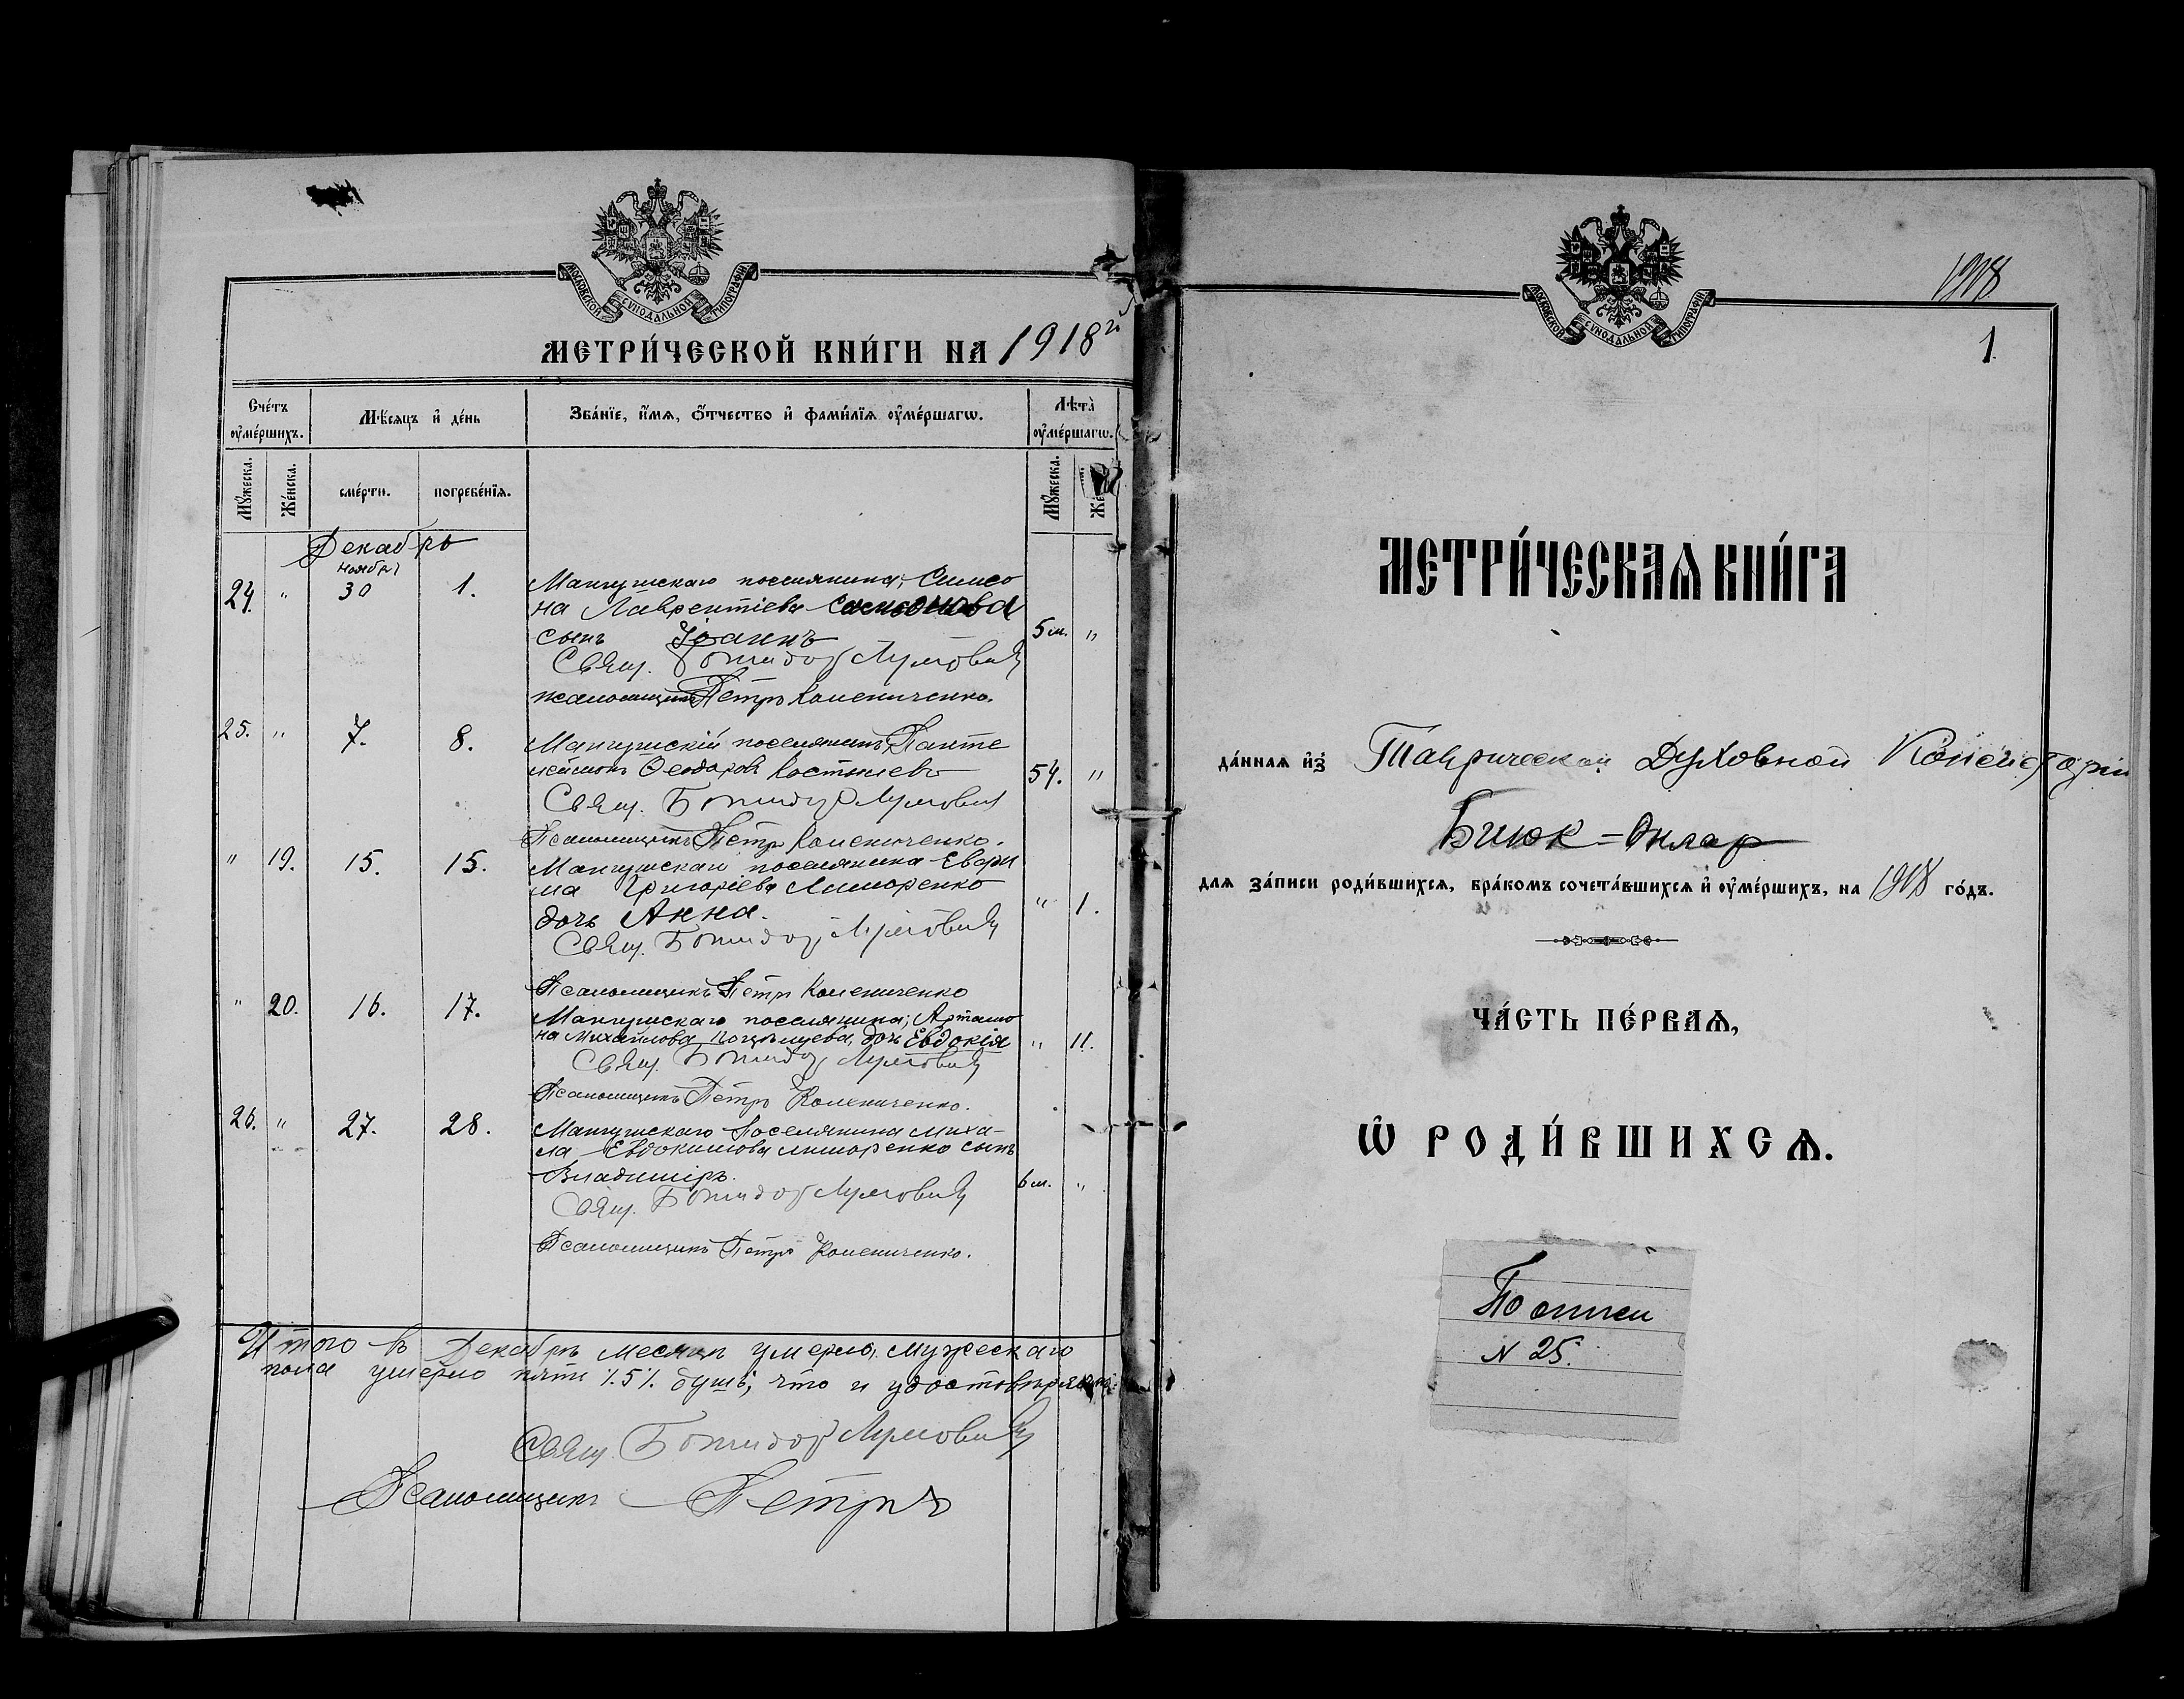 МОСКОВСКОЙ СѴНОДАЛЬНОЙ ТИПОГРАФІИ
МЕТРИ́ЧЕСКОЙ КНИ́ГИ НА 1918 г
Сче́тъ ᲂу҆ме́ршихъ.
Мѣ́сѧцъ и҆ де́нь
Зва́нїе, и҆́мѧ, ѻ҆́тчество и҆ фами́лїѧ ᲂу҆ме́ршагѡ.
Лѣта̀ ᲂу҆ме́ршагѡ.
Мꙋ́жеска.
Же́нска.
сме́рти.
погребе́нїѧ.
Мꙋ́жеска.
Декабрь
ноябрь
24. " 30 1. Мангушскаго поселянина; Симео
на Лаврентіева
сынъ Іоаннъ 5 м. "
Свящ.
псаломщикъ Петръ Комениченко.
25. " 7. 8. Мангушскій поселянинъ Панте
леймонъ Ѳеодоровъ Костылевъ 54. "
Свящ.
Псаломщикъ Петръ Комениченко.
" 19. 15. 15. Мангушскаго поселянина
Григоріева Лиморенко
дочь Анна. " 1.
Свящ.
Псаломщикъ Петръ Комениченко
" 20. 16. 17. Мангушскаго поселянина; Артамо
на Михайлова дочь Евдокія " 11.
Свящ.
Псаломщикъ Петръ Комениченко.
26. " 27. 28. Мангушскаго Поселянина Миха-
ла Евдокимова Лиморенко сынъ
Владиміръ. 6 м. "
Свящ.
Псаломщикъ Петръ Комениченко.
Итого въ Декабрѣ месяцѣ умерло, мужескаго
пола умерло пять 1.5 1. душъ, что и удостовѣряемъ:
Свящ.
Псаломщикъ Петръ
МОСКОВСКОЙ СѴНОДАЛЬНОЙ ТИПОГРАФІИ
1918
1.
МЕТРИ́ЧЕСКАѦ КНИ́ГА
да́ннаѧ и҆з̾ Таврической Духовной Консисторіи
Биюк-Онлар
для за́писи роди́вшихсѧ, бра́комъ сочета́вшихсѧ и҆ ᲂу҆ме́ршихъ, на 1918 го́дъ.
ЧА́СТЬ ПЕ́РВАѦ,
Ѽ РОДИ́ВШИХСѦ.
По описи
N 25.